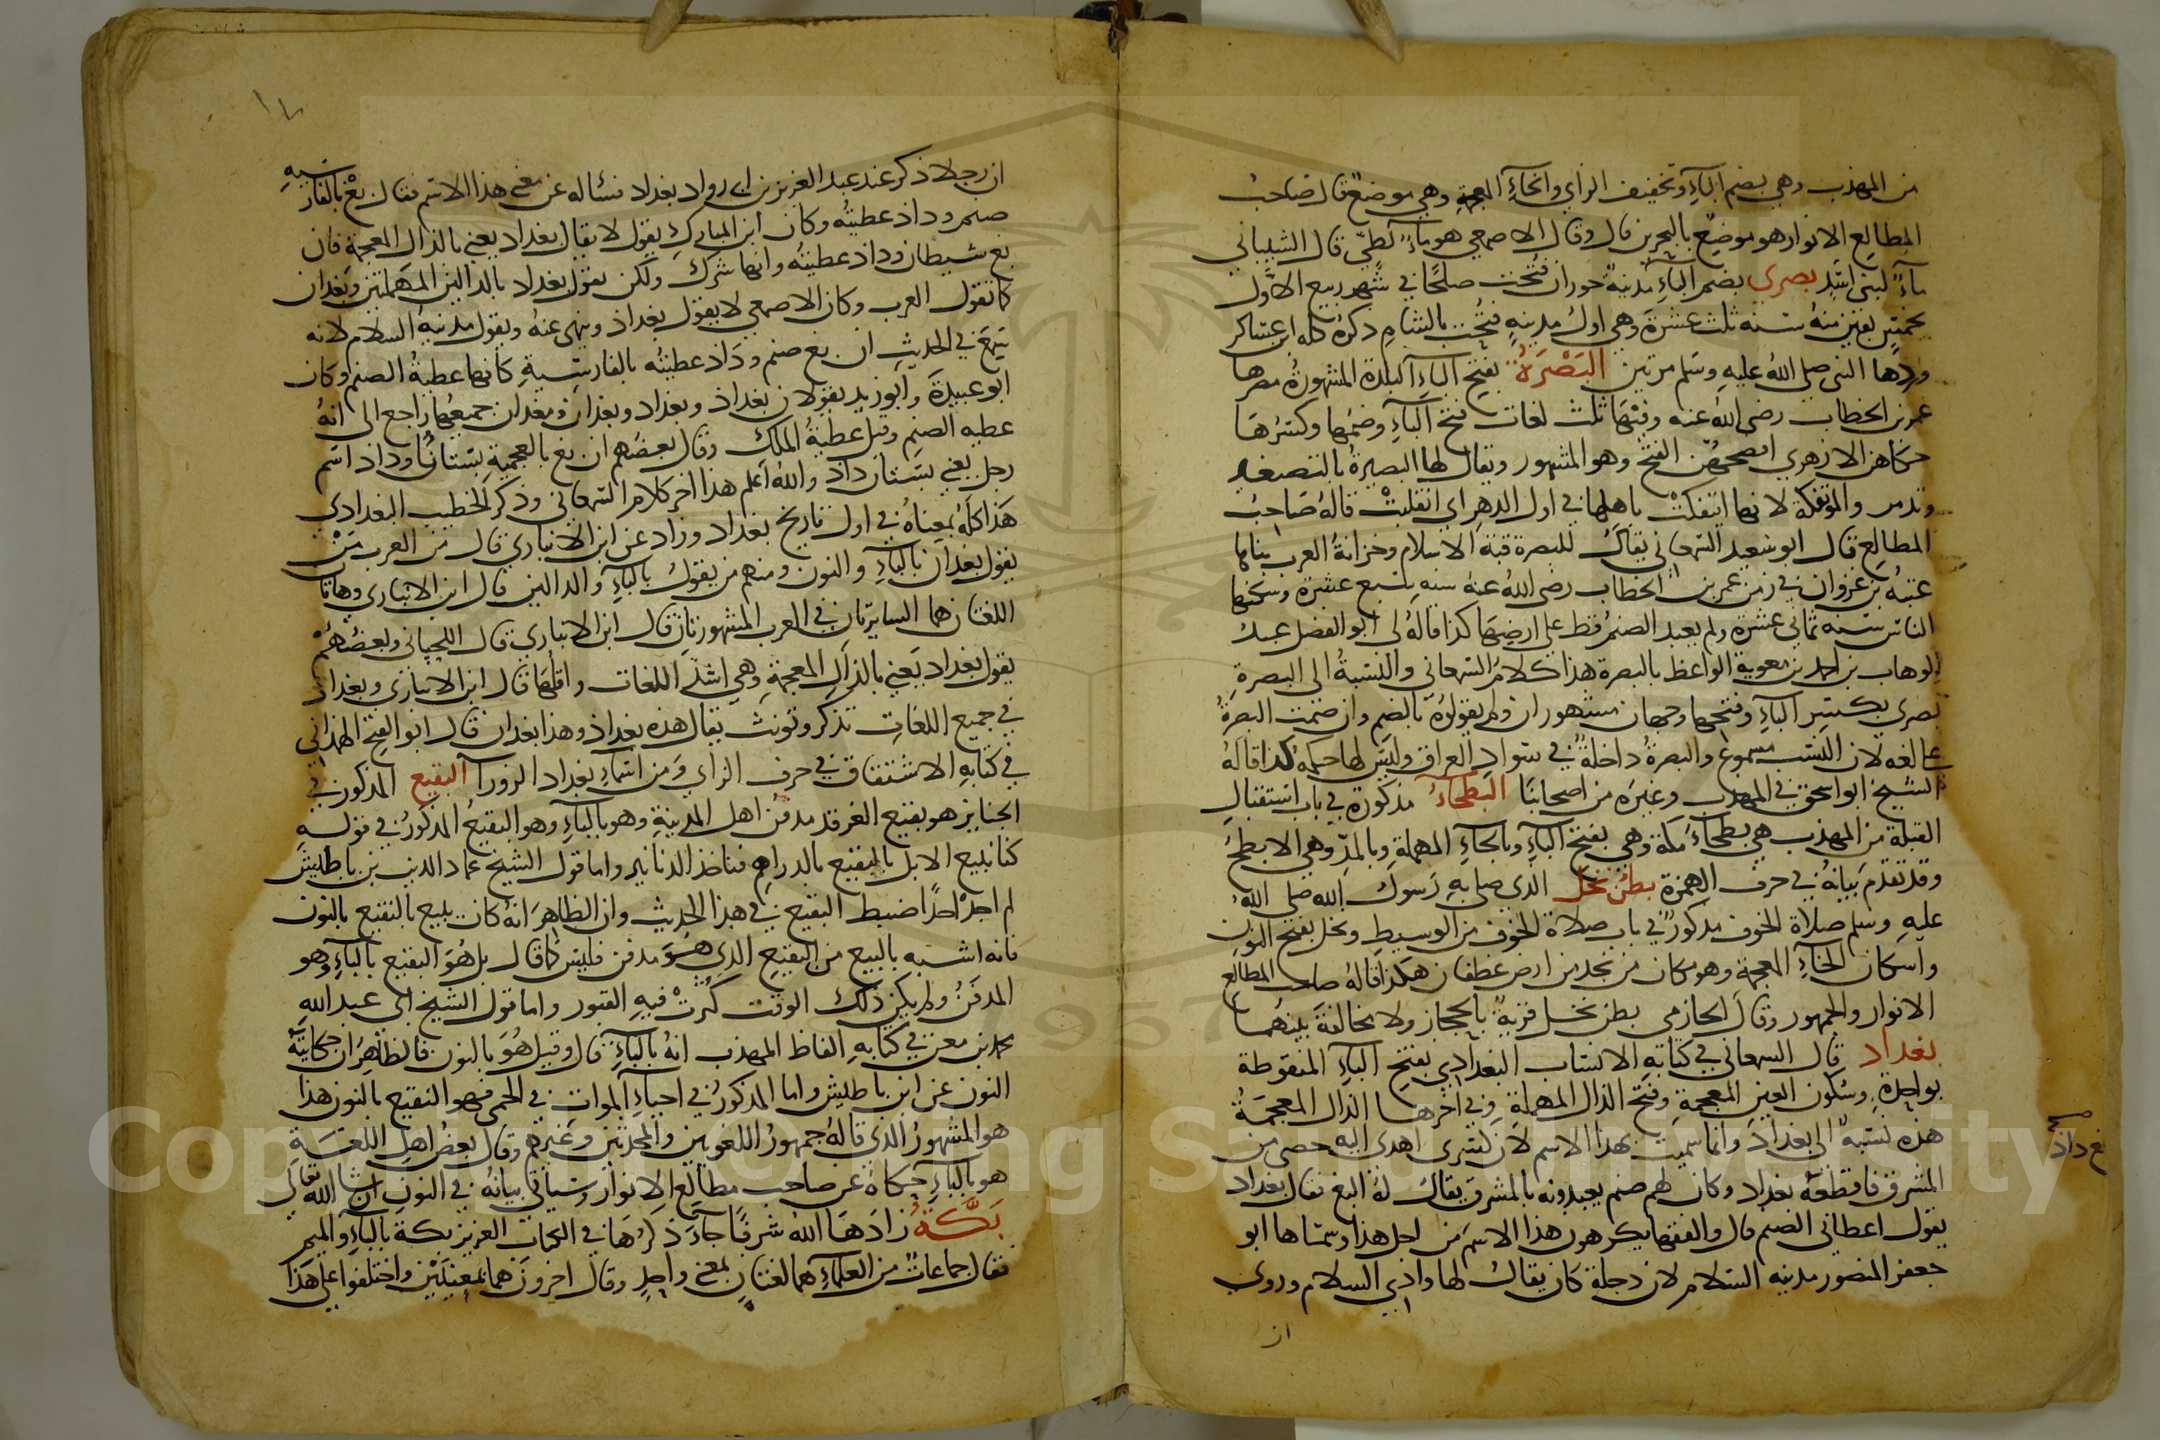 من المهذب وهي بضم الباء وتخفيف الزاي والخاء المعجمة وهي موضع قال صاحب
المطالع الانوار هو موضع بالبحرين قال وقال الاصمعي هو ماء لطي قال الشيباني
ماء لبني اسد بصرى بضم الباء مدينة حوران فتحت صلحا في شهر ربيع الاول
لخمس بقين منه سنه ثلث عشرة وهي اول مدينه فتحت بالشام ذكره كله ابن عساكر
وردها النبي صلى الله عليه وسلم مرتين البصرة بفتح الباء البلدة المشهورة مصرها
عمر بن الخطاب رضى الله عنه وفيها ثلث لغات فتح الباء وضمها وكسرها
حكاهن الازهري افصحهن الفتح وهو المشهور ويقال لها البصيرة بالتصغير
وتدمر والموتفكة لانها ايتفكت باهلها في اول الدهر اي انقلبت قاله صاحب
المطالع قال ابو سعيد السمعاني يقال للبصرة قبة الاسلام وخزانة العرب بناها
عتبه بن غزوان في زمن عمر بن الخطاب رضى الله عنه سنه سبع عشرة وسكنها
الناس سنه ثماني عشرة ولم يعبد الصنم قط على ارضها كذا قاله لى ابو الفضل عبد
الوهاب بن احمد بن معوية الواعظ بالبصرة هذا كلام السمعاني والنسبة الى البصرة
بصرى بكسر الباء وفتحها وجهان مشهوران ولم يقولوه بالضم وان ضمت البصرة
على لغه لان النسب مسموع والبصرة داخلة في سواد العراق وليس لها حكمه كذا قاله
الشيخ ابو اسحق في المهذب وغيره من اصحابنا البطحاء مذكورة في باب استقبال
القبلة من المهذب هي بطحاء مكة وهي بفتح الباء وبالحاء المهملة وبالمد وهي الابطح
وقد تقدم بيانه في حرف الهمزة بطن نخل الذى صلى به رسول الله صلى الله
عليه وسلم صلاة الخوف مذكور في باب صلاة الخوف من الوسيط ونخل بفتح النون
واسكان الخاء المعجمة وهو مكان من نجد من ارض غطفان هكذا قاله صاحب المطالع
الانوار والجمهور وقال الحازمي بطن نخل قرية بالحجاز ولا مخالفة بينهما
بغداد قال السمعاني في كتابه الانساب البغدادي بفتح الباء المنقوطة
بواحدة وسكون الغين المعجمة وفتح الذال المهملة وفي اخرها الذال المعجمة
هذه نسبة الى بغداد وانما سميت بهذا الاسم لان كسرى اهدى اليه خصى من
المشرق فاقطعه بغداد وكان لهم صنم يعبدونه بالمشرق يقال له البغ فقال بغداد
يقول اعطاني الصنم قال والفقها يكرهون هذا الاسم من اجل هذا وسماها ابو
جعفر المنصور مدينه السلام لان دجلة كان يقال لها وادي السلام وروى
ان
بغ داد
ان رجلا ذكر عند عبد العزيز بن ابى رواد بغداد فسأله عن معنى هذا الاسم فقال بغ بالفارسيه
صنم وداذ عطيته وكان ابن المبارك يقول لا يقال بغداد يعني بالذال المعجمة فان
بغ شيطان وداذ عطيته وانها شرك ولكن يقول بغداد بالدالين المهملتين وبغدان
كما تقول العرب وكان الاصمعي لا يقول بغداذ وينهى عنه ويقول مدينة السلام لانه
سمع في الحديث ان بغ صنم وداذ عطيته بالفارسية كانها عطية الصنم وكان
ابو عبيدة وابو زيد يقولان بغداذ وبغداد وبغدان ومغدان جميعها راجع الى انه
عطيه الصنم وقيل عطية الملك وقال بعضهم ان بغ بالعجمية بستان وداد اسم
رجل يعني بستان داد والله اعلم هذا اخر كلام السمعاني وذكر الخطيب البغدادي
هذا كله بمعناه في اول تاريخ بغداد وزاد عن ابن الانباري قال من العرب من
يقول بغدان بالباء والنون ومنهم من يقول بالباء والدالين قال ابن الانباري وهاتان
اللغتان هما السايرتان في العرب المشهورتان قال ابن الانباري قال اللحياني وبعضهم
يقول بغداد يعني بالذال المعجمة وهي اشذ اللغات واقلها قال ابن الانباري وبغداد
في جميع اللغات تذكر وتونث يقال هذه بغداد وهذا بغدان قال ابو الفتح الهمداني
في كتابه الاشتقاق في حرف الزاي ومن اسماء بغداد الزورا البقيع المذكور في
الجنايز هو بقيع الغرقد مدفن اهل المدينة وهو بالباء وهو البقيع المذكور في قوله
كنا نبيع الابل بالبقيع بالدراهم فناخذ الدنانير واما قول الشيخ عماد الدين بن باطيش
لم اجد احدا ضبط البقيع في هذا الحديث وان الظاهر انه كان يبيع بالنقيع بالنون
فانه اشبه بالبيع من البقيع الذي هو مدفن فليس كما قال بل هو البقيع بالباء وهو
المدفن ولم يكن ذلك الوقت كثرت فيه القبور واما قول الشيخ ابى عبد الله
محمد بن معن في كتابه الفاظ المهذب انه بالباء قال وقيل هو بالنون فالظاهر ان حكايته
النون عن ابن باطيش واما المذكور في احياء الموات في الحمى فهو النقيع بالنون هذا
هو المشهور الذى قاله جمهور اللغويين والمحدثين وغيرهم وقال بعض اهل اللغة
هو بالباء حكاه عن صاحب مطالع الانوار وسياتي بيانه في النون ان شا الله تعالى
بكة زادها الله شرفا جاء ذكرها في الكتاب العزيز بكة بالباء والميم
فقال جماعات من العلماء هما لغتان بمعنى واحد وقال اخرون هما بمعنيين واختلفوا على هذا
Copyright © King Saud University
1957